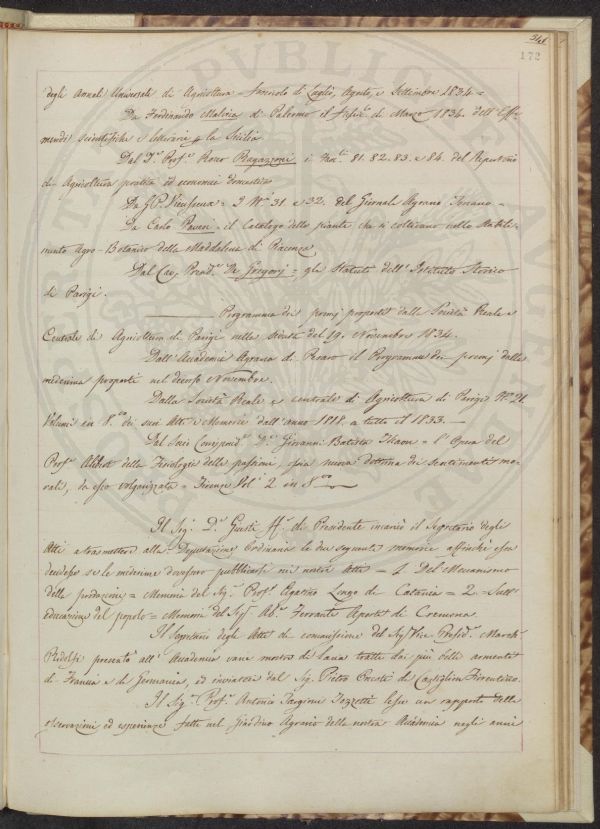 241
172
degli Annali Universali di Agricoltura = Fascicolo di Luglio, Agosto, e Settembre 1834 =
Da Ferdinando Malvica di Palermo il di Marzo 1834. dell'Effe-
meridi scientifiche e letterarie p la Sicilia
Dal D.r Prof.e Rocco Ragazzoni i Fasc.li 81. 82. 83. e 84. del Repertorio
di Agricoltura pratica ed economia domestica
Da G. P. Vieusseux = I N.i 31 e 32. del Giornale Agrario Toscano =
Da Carlo Pavesi = il Catalogo delle piante che si coltivano nello Stabili-
mento Agro-Botanico della Maddalena di Piacenza
Dal Cav. Presid.e De Gregorj = gli Statuti dell'Istituto Storico
di Parigi.
Programma dei premj proposti dalla Società Reale e
Centrale di Agricoltura di Parigi nella seduta del 19. Novembre 1834.
Dall'Accademia Agraria di Pesaro il Programma dei premj dalla
medesima proposti nel decorso Novembre.
Dalla Società Reale e centrale di Agricoltura di Parigi N.o 21.
Volumi in 8.vo dei suoi Atti e Memorie dall'anno 1818. a tutto il 1833. —
Dal Socio Corrispond.e D.r Giovanni Batista Thaon = l'Opera del
Prof.e Alibert della Fisiologia delle passioni, ossia nuova dottrina dei sentimenti mo-
rali, da esso volgarizzata = Firenze Vol.i 2 in 8.vo
Il Sig.r D.r Giusti ff. di Presidente incaricò il Segretario degli
Atti a trasmettere alla Deputazione Ordinaria le due seguenti memorie affinchè essa
decidesse se le medesime dovessero pubblicarsi nei nostri Atti = 1. Del Meccanismo
della produzione = Memoria del Sig.r Prof.e Agatino Longo di Catania = 2. = Sull'
educazione del popolo = Memoria del Sig.r Ab.e Ferrante Aporti di Cremona.
Il Segretario degli Atti di commissione del Sig.r Vice Presid.e March.e
Ridolfi presentò all'Accademia varie mostre di lana tratte dai più belli armenti
di Francia e di Germania, ed inviatele dal Sig. Pietro Onesti di Castiglion Fiorentino.
Il Sig.r Prof.e Antonio Targioni Tozzetti lesse un rapporto delle
osservazioni ed esperienze fatte nel Giardino Agrario della nostra Accademia negli anni